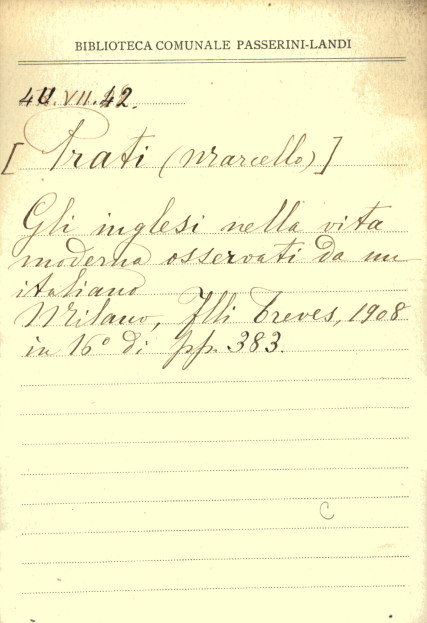 BIBLIOTECA COMUNALE PASSERINI-LANDI
4U.VII.42.
[Prati (Marcello)]
Gli inglesi nella vita
moderna osservati da un
italiano
Milano, Flli Treves, 1908
in 16° di pp. 383.
C